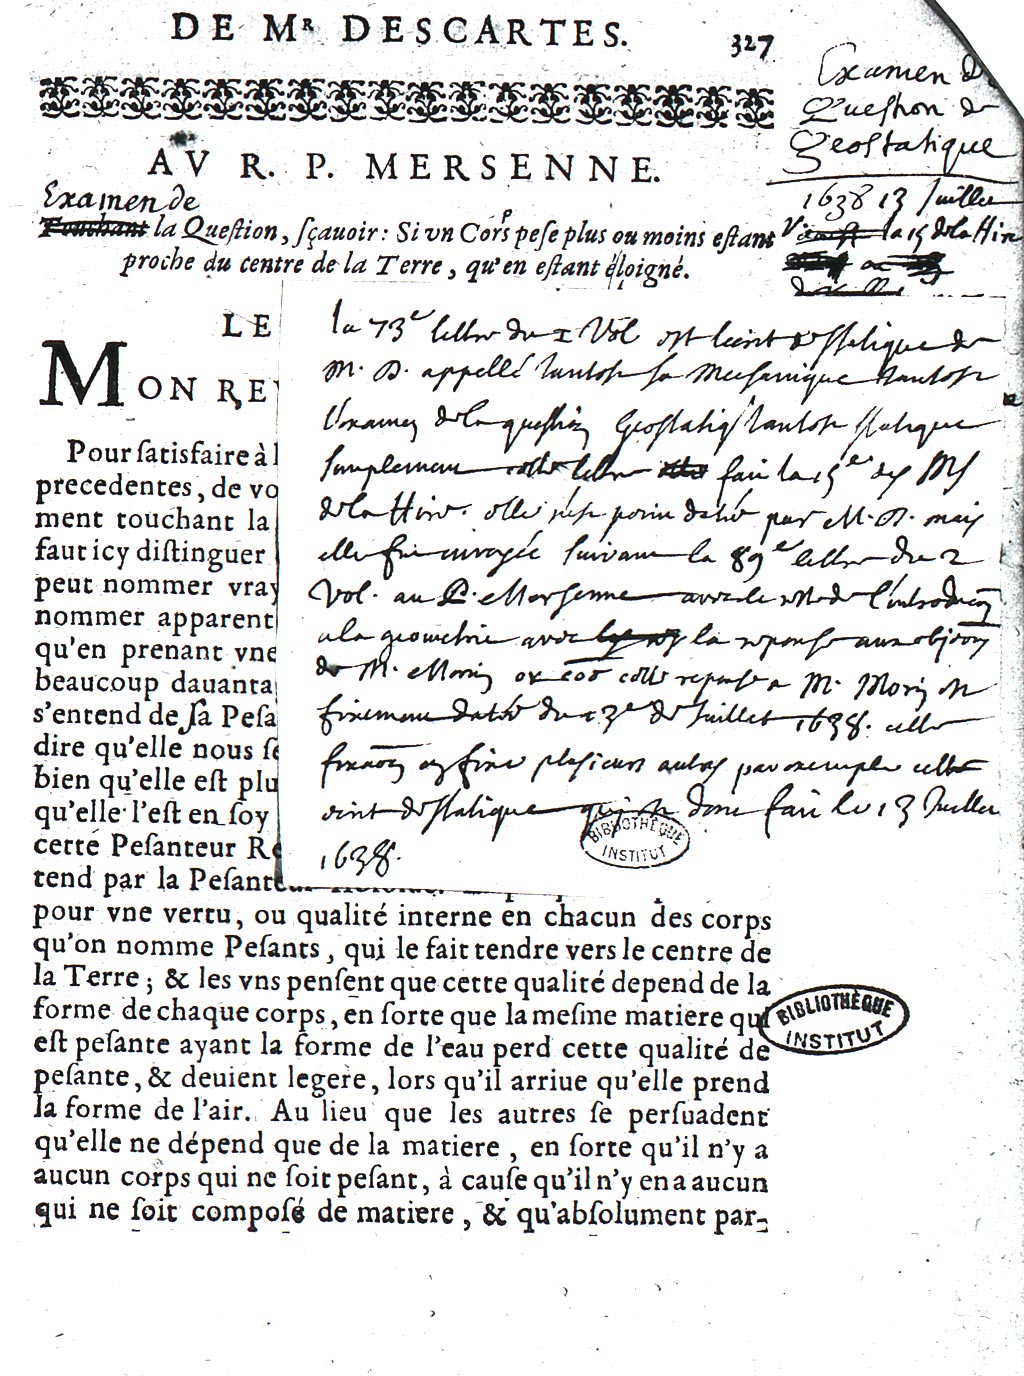 DE Mʳ DESCARTES.
327
Examen De
Question de
Geostatique
AV R. P. MERSENNE.
1638 13 Juillet
Examen de
Touchant la Question, sçauoir: Si vn Corps pese plus ou moins estant
la 15 de la Hire
proche du centre de la Terre, qu'en estant éloigné.
LE
la 73ᵉ lettre du 1 Vol est lecrit de statique de
M. D. appellé tantost sa Mechanique tantost
MON REV
l'examen de la question Geostatiq tantost statique
Pour satisfaire à l
simplement cette lettre fait la 15ᵉ des MS
precedentes, de vo
de la Hire. elle n'est point datée par M. D. mais
ment touchant la
elle fut envoyée suivant la 89ᵉ lettre du 2
faut icy distinguer
Vol. au P. Mersenne avec le reste de l'introduction
peut nommer vray
a la geometrie avec la reponse aux objections
nommer apparent
de M. Morin or cette reponse a M. Morin est
qu'en prenant vne
fixement datée du 13ᵉ de Juillet 1638. cette
beaucoup dauanta
fixation en fixe plusieurs autres par exemple cet
s'entend de sa Pesa
ecrit de statique qui est donc fait le 13 Juillet
dire qu'elle nous se
1638.
bien qu'elle est plu
qu'elle l'est en soy
BIBLIOTHÈQUE
INSTITUT
cette Pesanteur Re
tend par la Pesanteur
pour vne vertu, ou qualité interne en chacun des corps
qu'on nomme Pesants, qui le fait tendre vers le centre de
la Terre; & les vns pensent que cette qualité depend de la
forme de chaque corps, en sorte que la mesme matiere qui
BIBLIOTHÈQUE
INSTITUT
est pesante ayant la forme de l'eau perd cette qualité de
pesante, & deuient legere, lors qu'il arriue qu'elle prend
la forme de l'air. Au lieu que les autres se persuadent
qu'elle ne dépend que de la matiere, en sorte qu'il n'y a
aucun corps qui ne soit pesant, à cause qu'il n'y en a aucun
qui ne soit composé de matiere, & qu'absolument par-